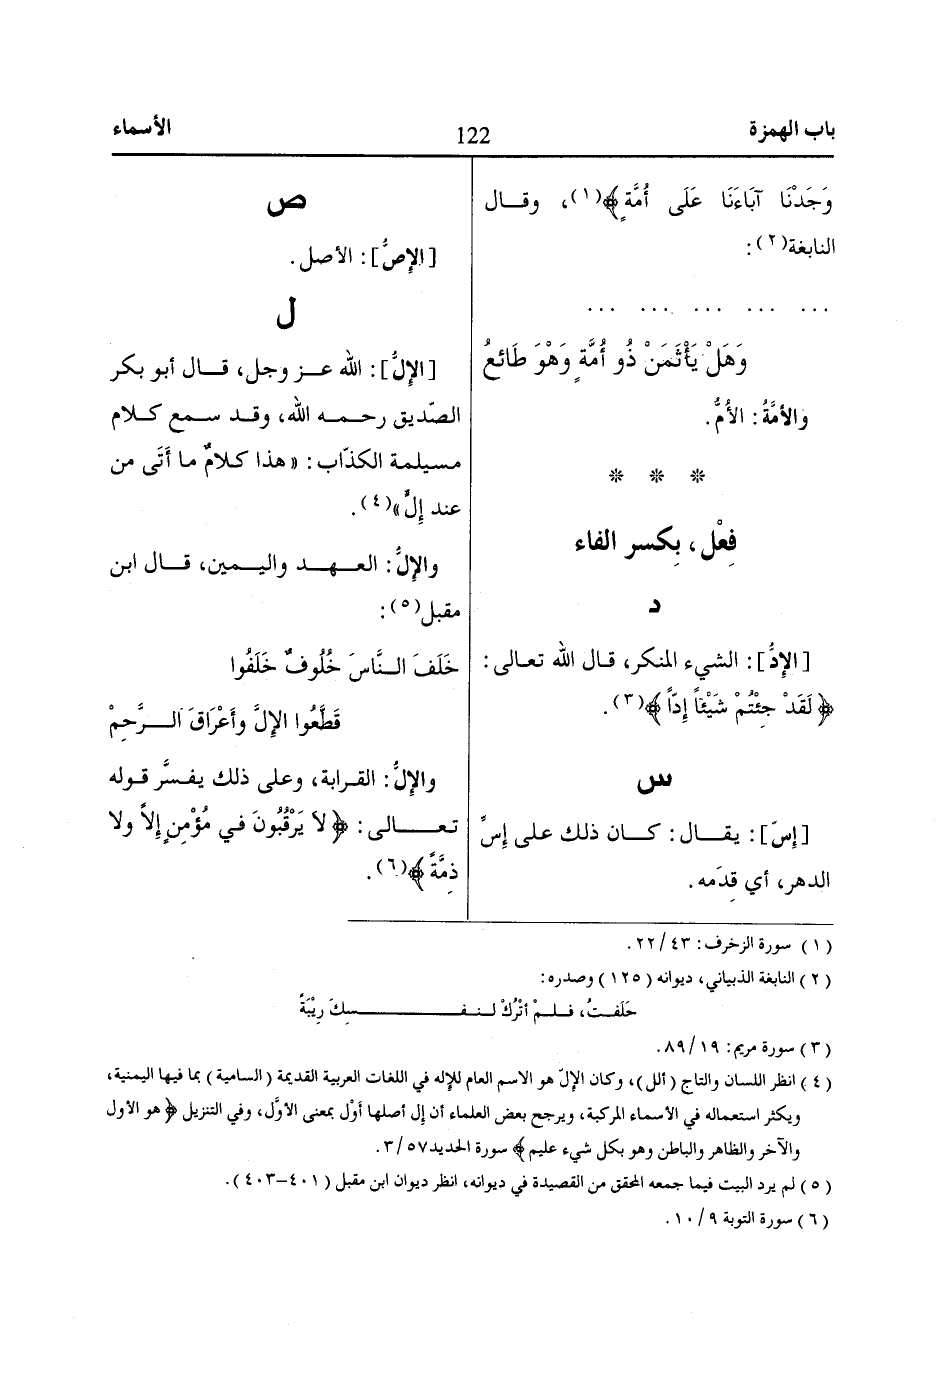 باب الهمزة
122
الأسماء
وَجَدْنَا آبَاءَنَا عَلَى أُمَّةٍ﴾(١)، وقال
النابغة(٢):
... ... ... ... ...
وَهَلْ يَأْثَمَنْ ذُو أُمَّةٍ وَهْوَ طَائعُ
والأمَّةُ: الأُمُّ.
* * *
فِعْل، بكسر الفاء
د
[الإِدُّ]: الشيء المنكر، قال الله تعالى:
﴿لَقَدْ جِئْتُمْ شَيْئاً إِدّاً﴾(٣).
س
[إِسّ]: يقال: كان ذلك على إِسِّ
الدهر، أي قِدَمه.
ص
[الإِصُّ]: الأصل.
ل
[الإِلُّ]: الله عز وجل، قال أبو بكر
الصّديق رحمه الله، وقد سمع كلام
مسيلمة الكذّاب: «هذا كلامٌ ما أَتَى من
عند إِلٍّ»(٤).
والإِلُّ: العهد واليمين، قال ابن
مقبل(٥):
خَلَفَ النَّاسَ خُلُوفٌ خَلَفُوا
قَطَّعُوا الإِلَّ وأَعْرَاقَ الرَّحِمْ
والإِلُّ: القرابة، وعلى ذلك يفسَّر قوله
تعالى: ﴿لا يَرْقُبُونَ في مُؤْمِنٍ إِلاًّ ولا
ذِمَّةً﴾(٦).
(١) سورة الزخرف: ٤٣/٢٢.
(٢) النابغة الذبياني، ديوانه (١٢٥) وصدره:
حَلَفتُ، فلمْ أتْرُكْ لنفسِكَ رِيْبَةً
(٣) سورة مريم: ١٩/٨٩.
(٤) انظر اللسان والتاج (ألل)، وكان الإلّ هو الاسم العام للإله في اللغات العربية القديمة (السامية) بما فيها اليمنية،
ويكثر استعماله في الأسماء المركبة، ويرجح بعض العلماء أن إل أصلها أوْل بمعنى الأوَّل، وفي التنزيل ﴿هو الأول
والآخر والظاهر والباطن وهو بكل شيء عليم﴾ سورة الحديد٥٧/٣.
(٥) لم يرد البيت فيما جمعه المحقق من القصيدة في ديوانه، انظر ديوان ابن مقبل (٤٠١-٤٠٣).
(٦) سورة التوبة ٩/١٠.